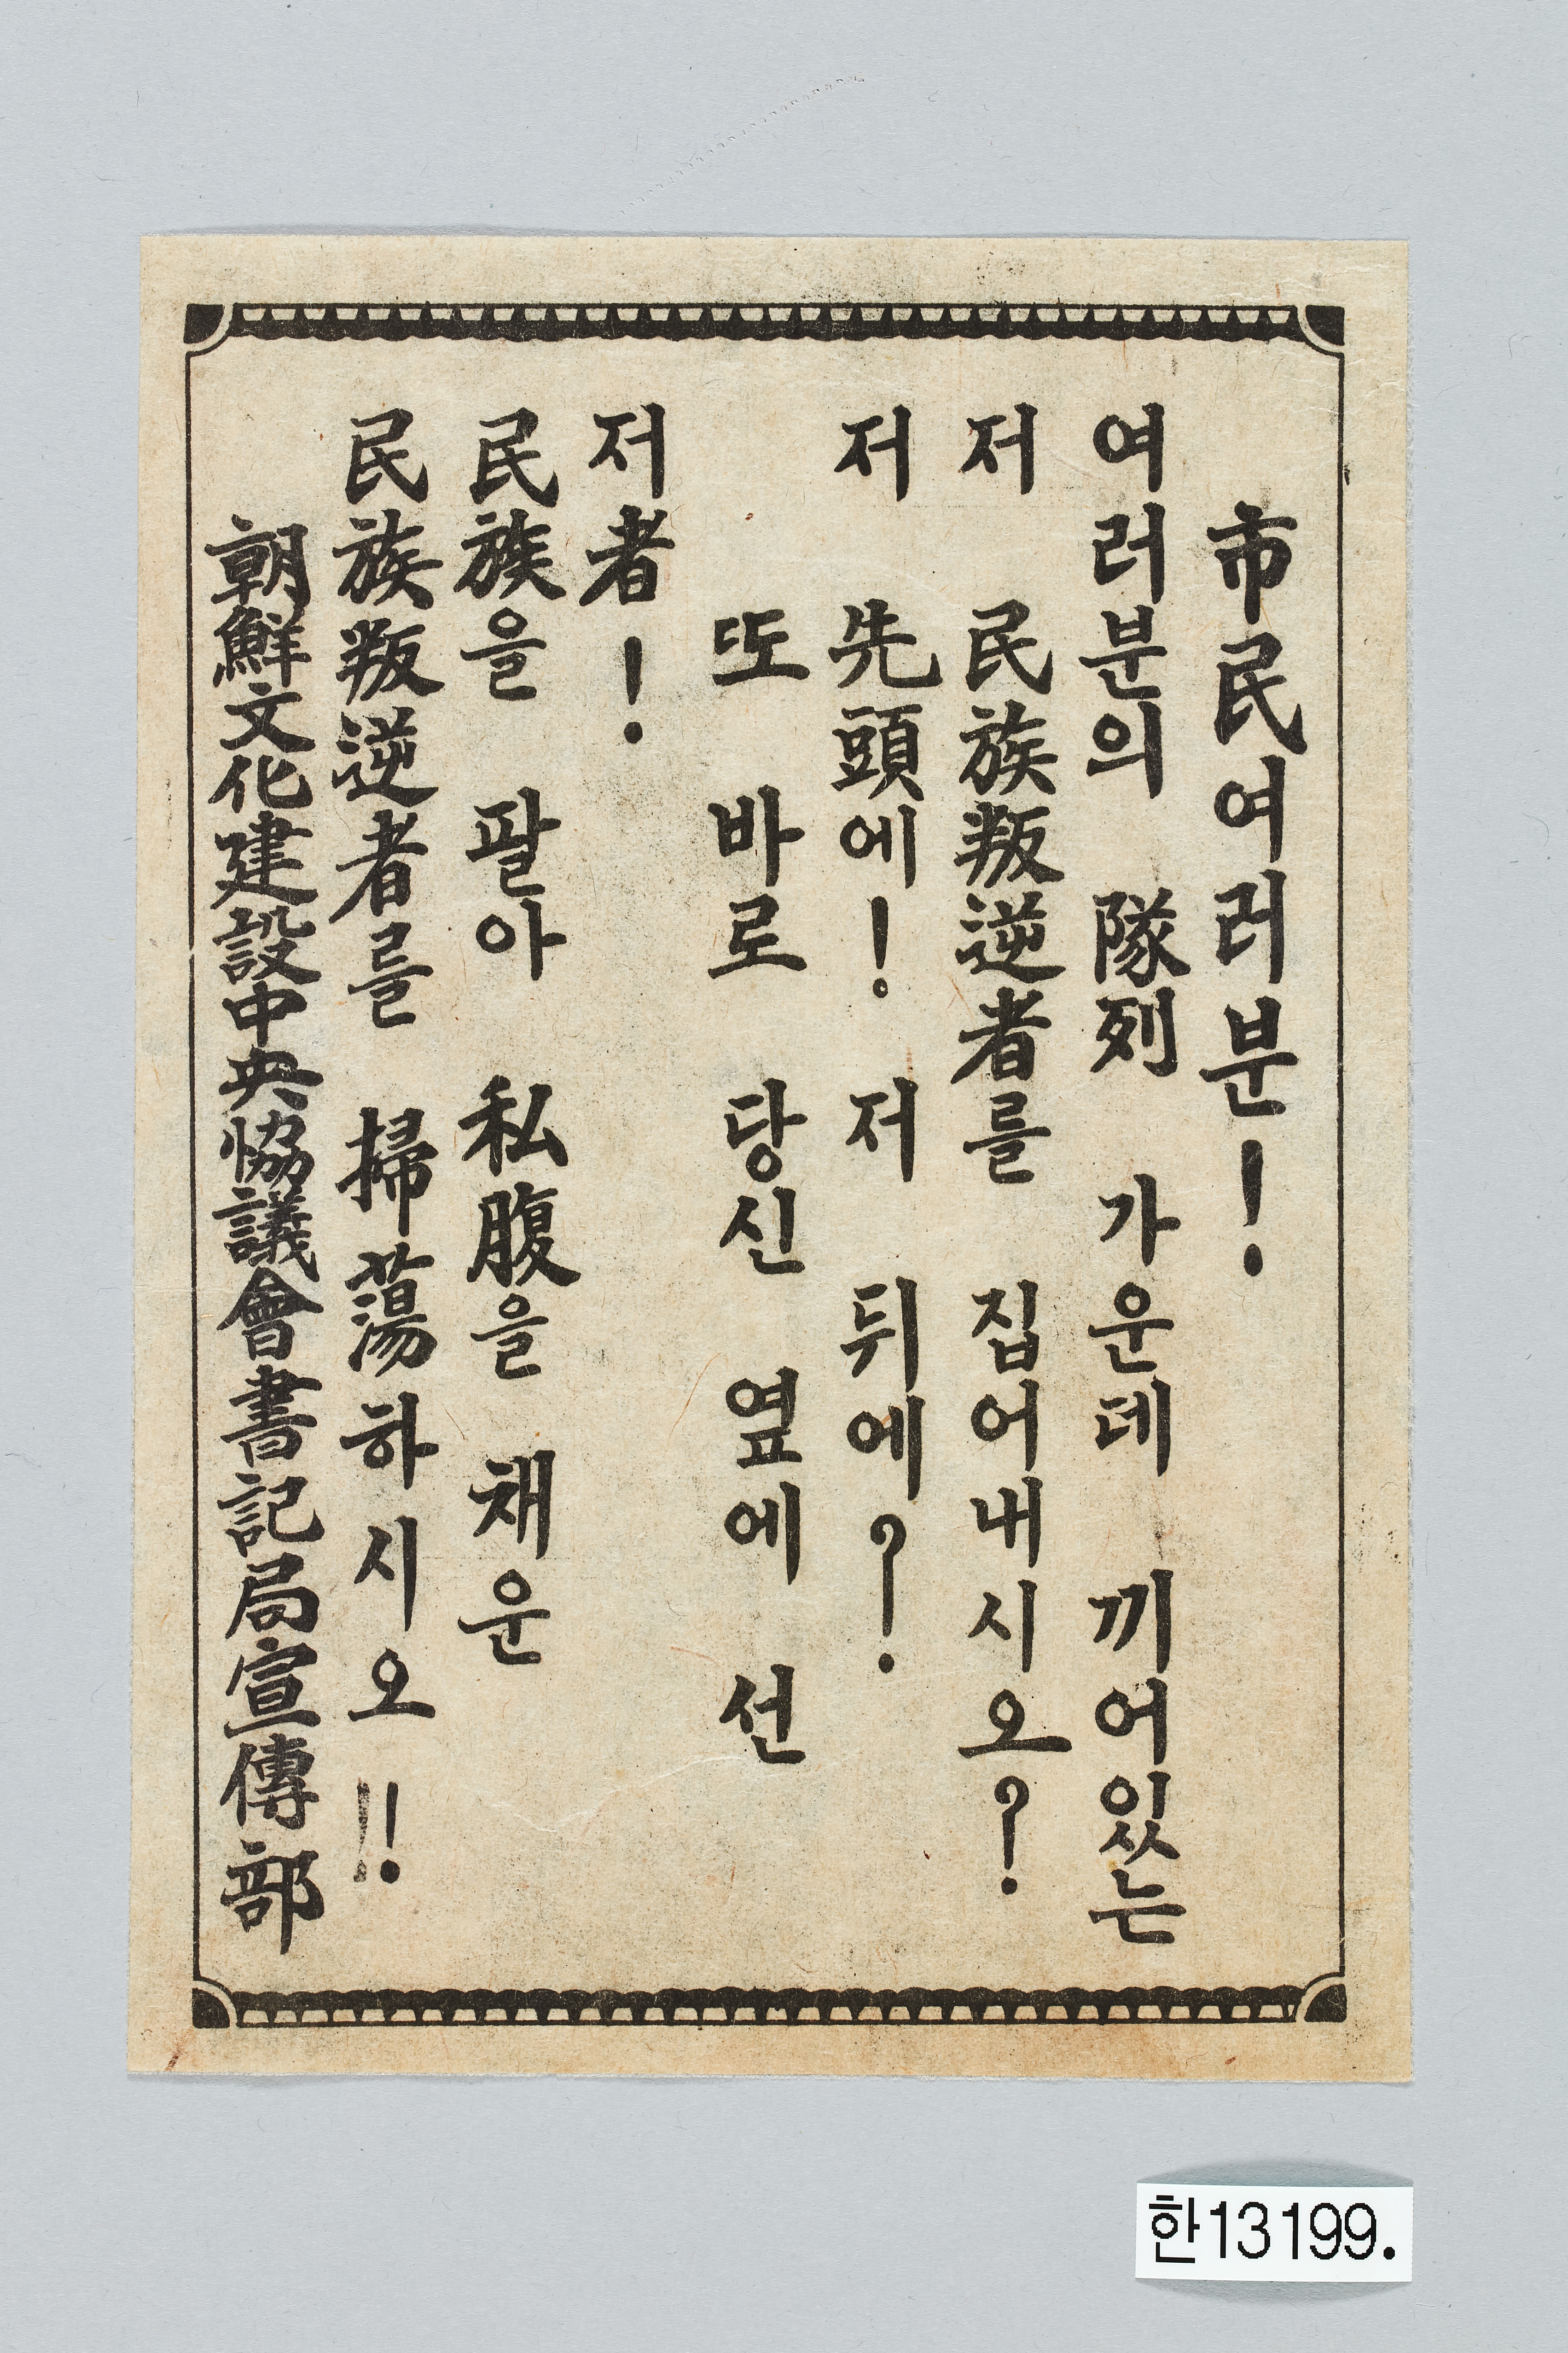 市民여러분!
여러분의 隊列 가운데 끼어있는
저 民族叛逆者를 집어내시오?
저 先頭에! 저 뒤에?
또 바로 당신 옆에 선
저者!
民族을 팔아 私腹을 채운
民族叛逆者를 掃蕩하시오!!
朝鮮文化建設中央協議會書記局宣傳部
한13199.